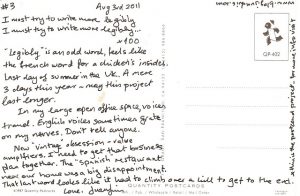 #3 Aug 3rd 2011
I must try to write more legibly
I must try to write more legibly...
×100
"Legibly" is an odd word, feels like
the French word for a chicken's insides.
Last day of summer in the UK. A mere
3 days this year - may this project
last longer.
In my large open office space, voices
travel. English voices sometimes grate
on my nerves. Don't tell anyone.
New 'vintage' obsession - valve
amplifiers. I need to get that business
plan together. The "Spanish" restaurant
near our home was a big disappointment.
That last word looks like it had to climb over a hill to get to the end.
Love,
QP-402
QUANTITY POSTCARDS
the postcard project, for more info visit